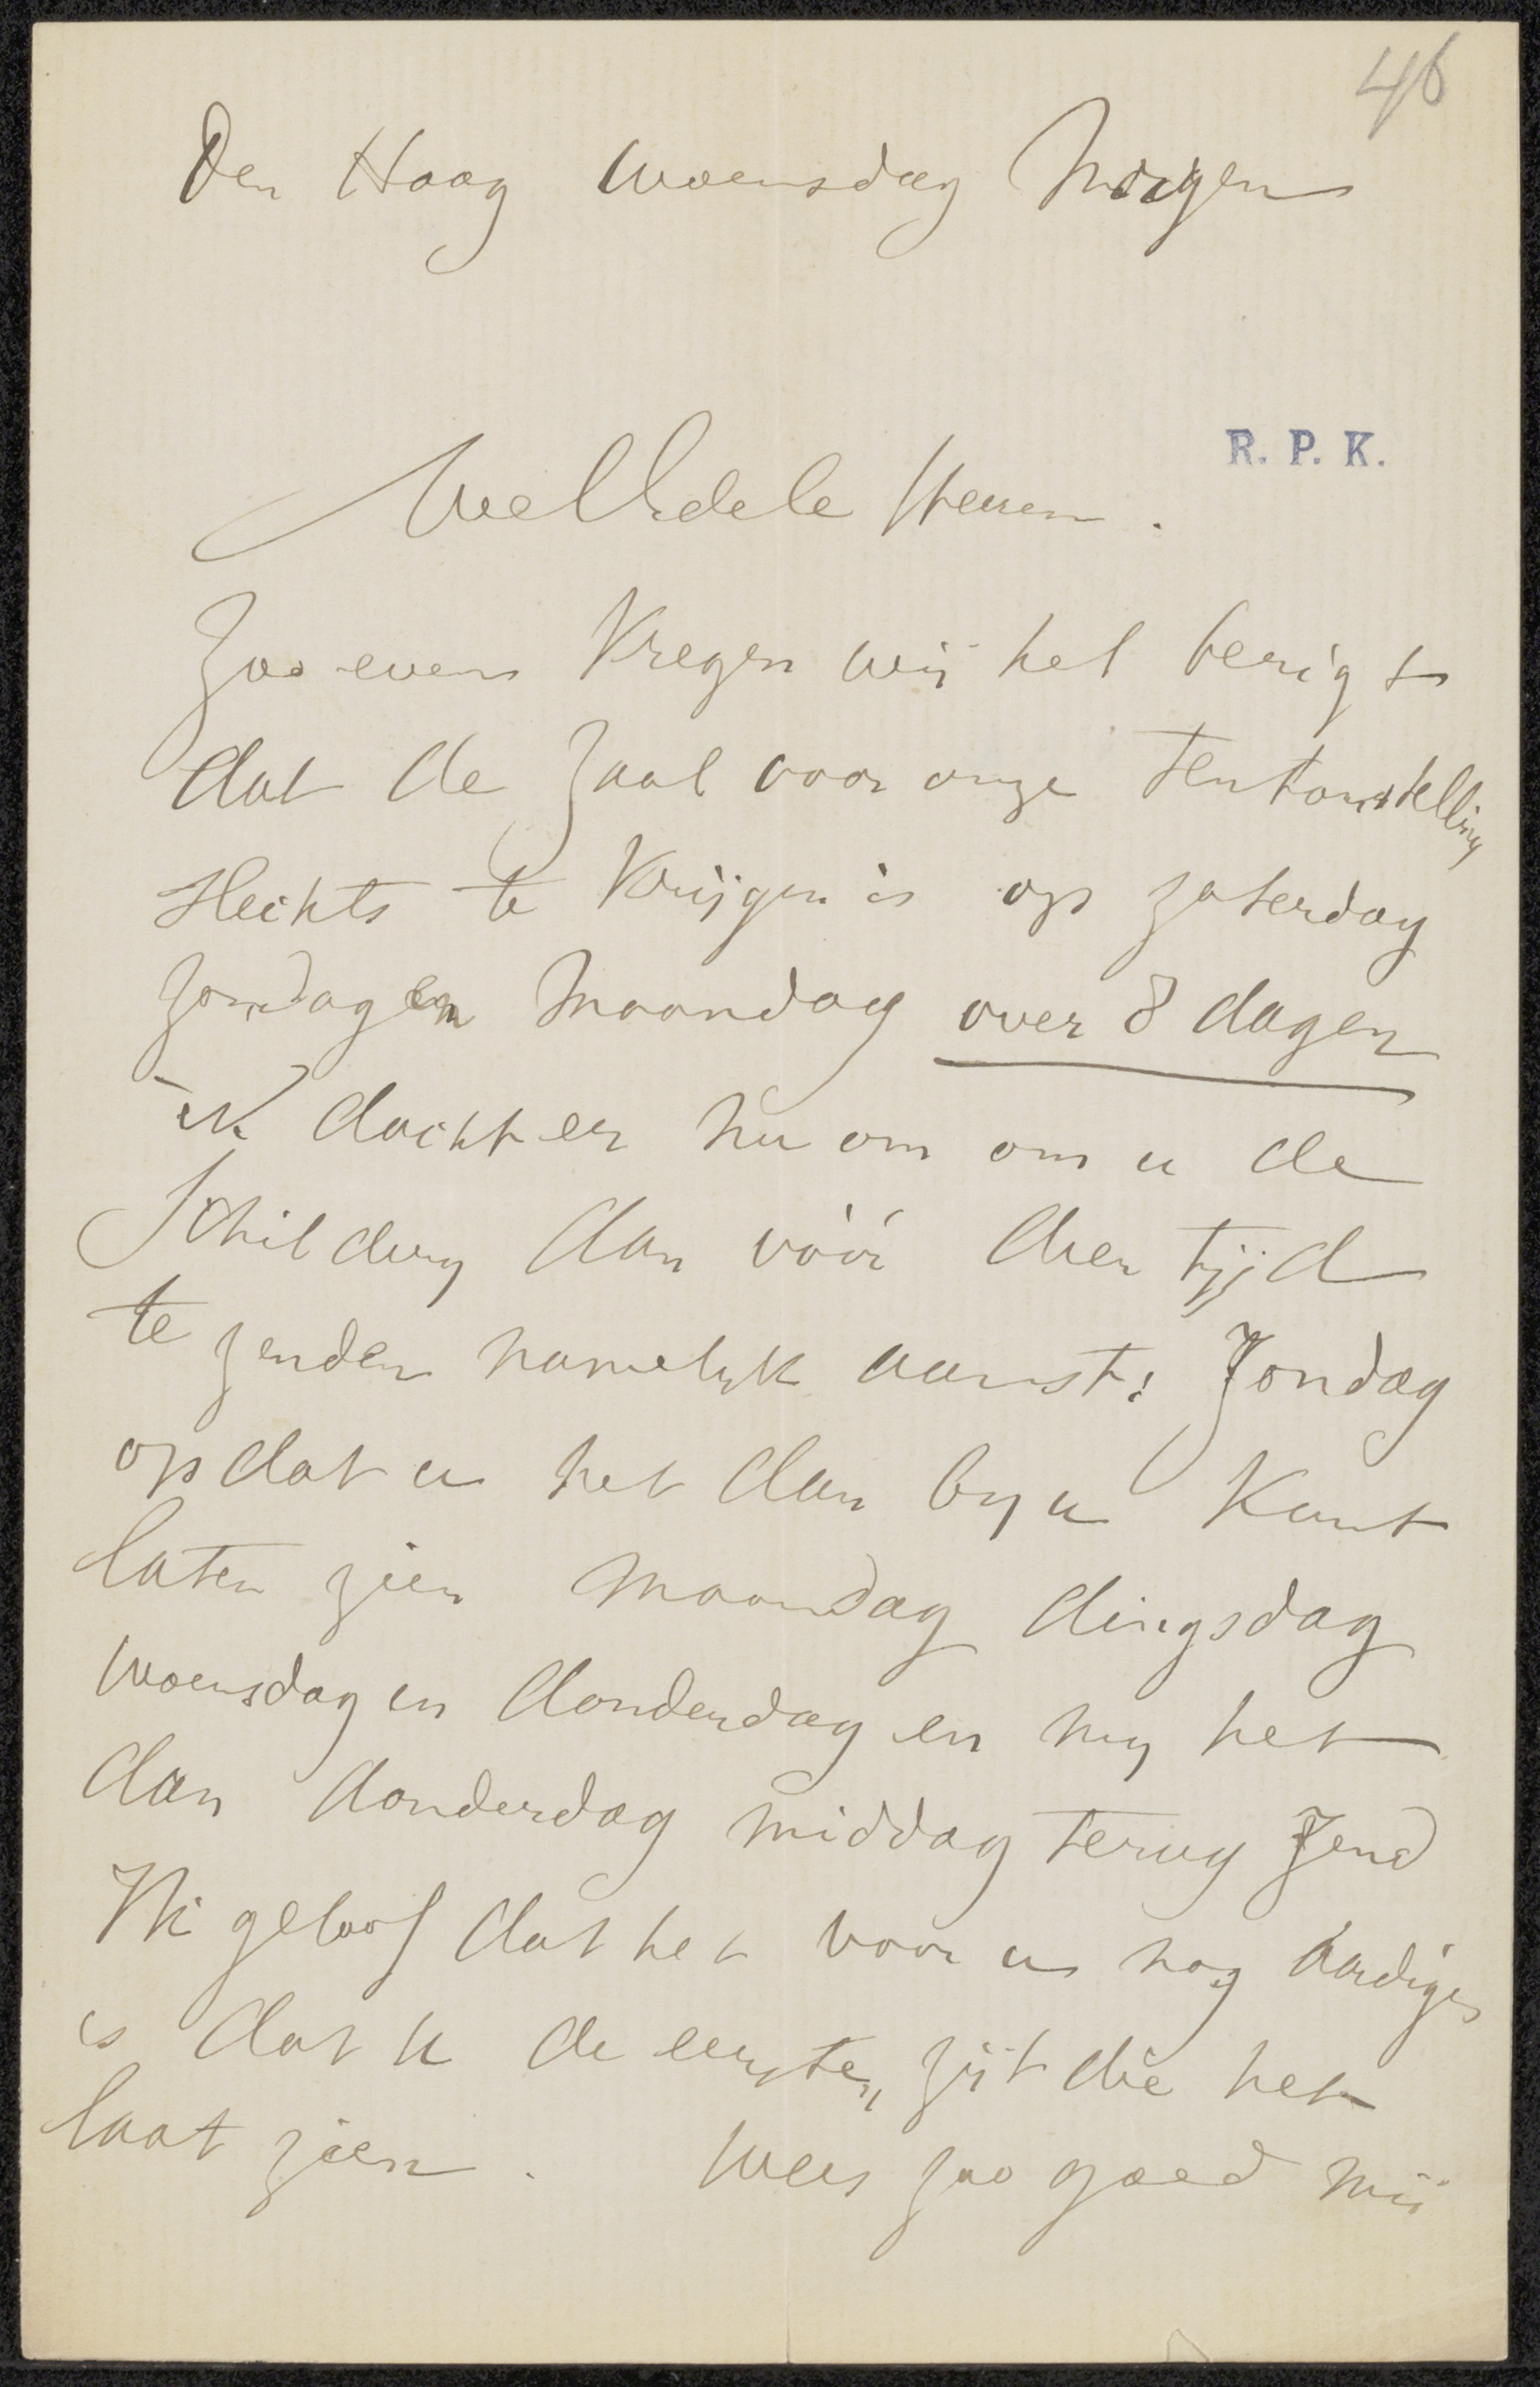 46
Den Haag Woensdag Morgen
R. P. K.
WelEdele Heeren.
Zoo even kregen wij het berigt
dat de zaal voor onze Tentoonstelling
slechts te krijgen is op zaterdag
zondag en Maandag over 8 dagen
ik dacht er nu om om u de
Schildery dan vóór dien tijd
te zenden namelyk aanst: Zondag
op dat u het dan by u kunt
laten zien Maandag dingsdag
Woensdag en donderdag en my het
dan donderdag middag terug zend
Ik geloof dat het voor u nog aardiger
is dat u de eersten zijt die het
laat zien. Wees zoo goed mij